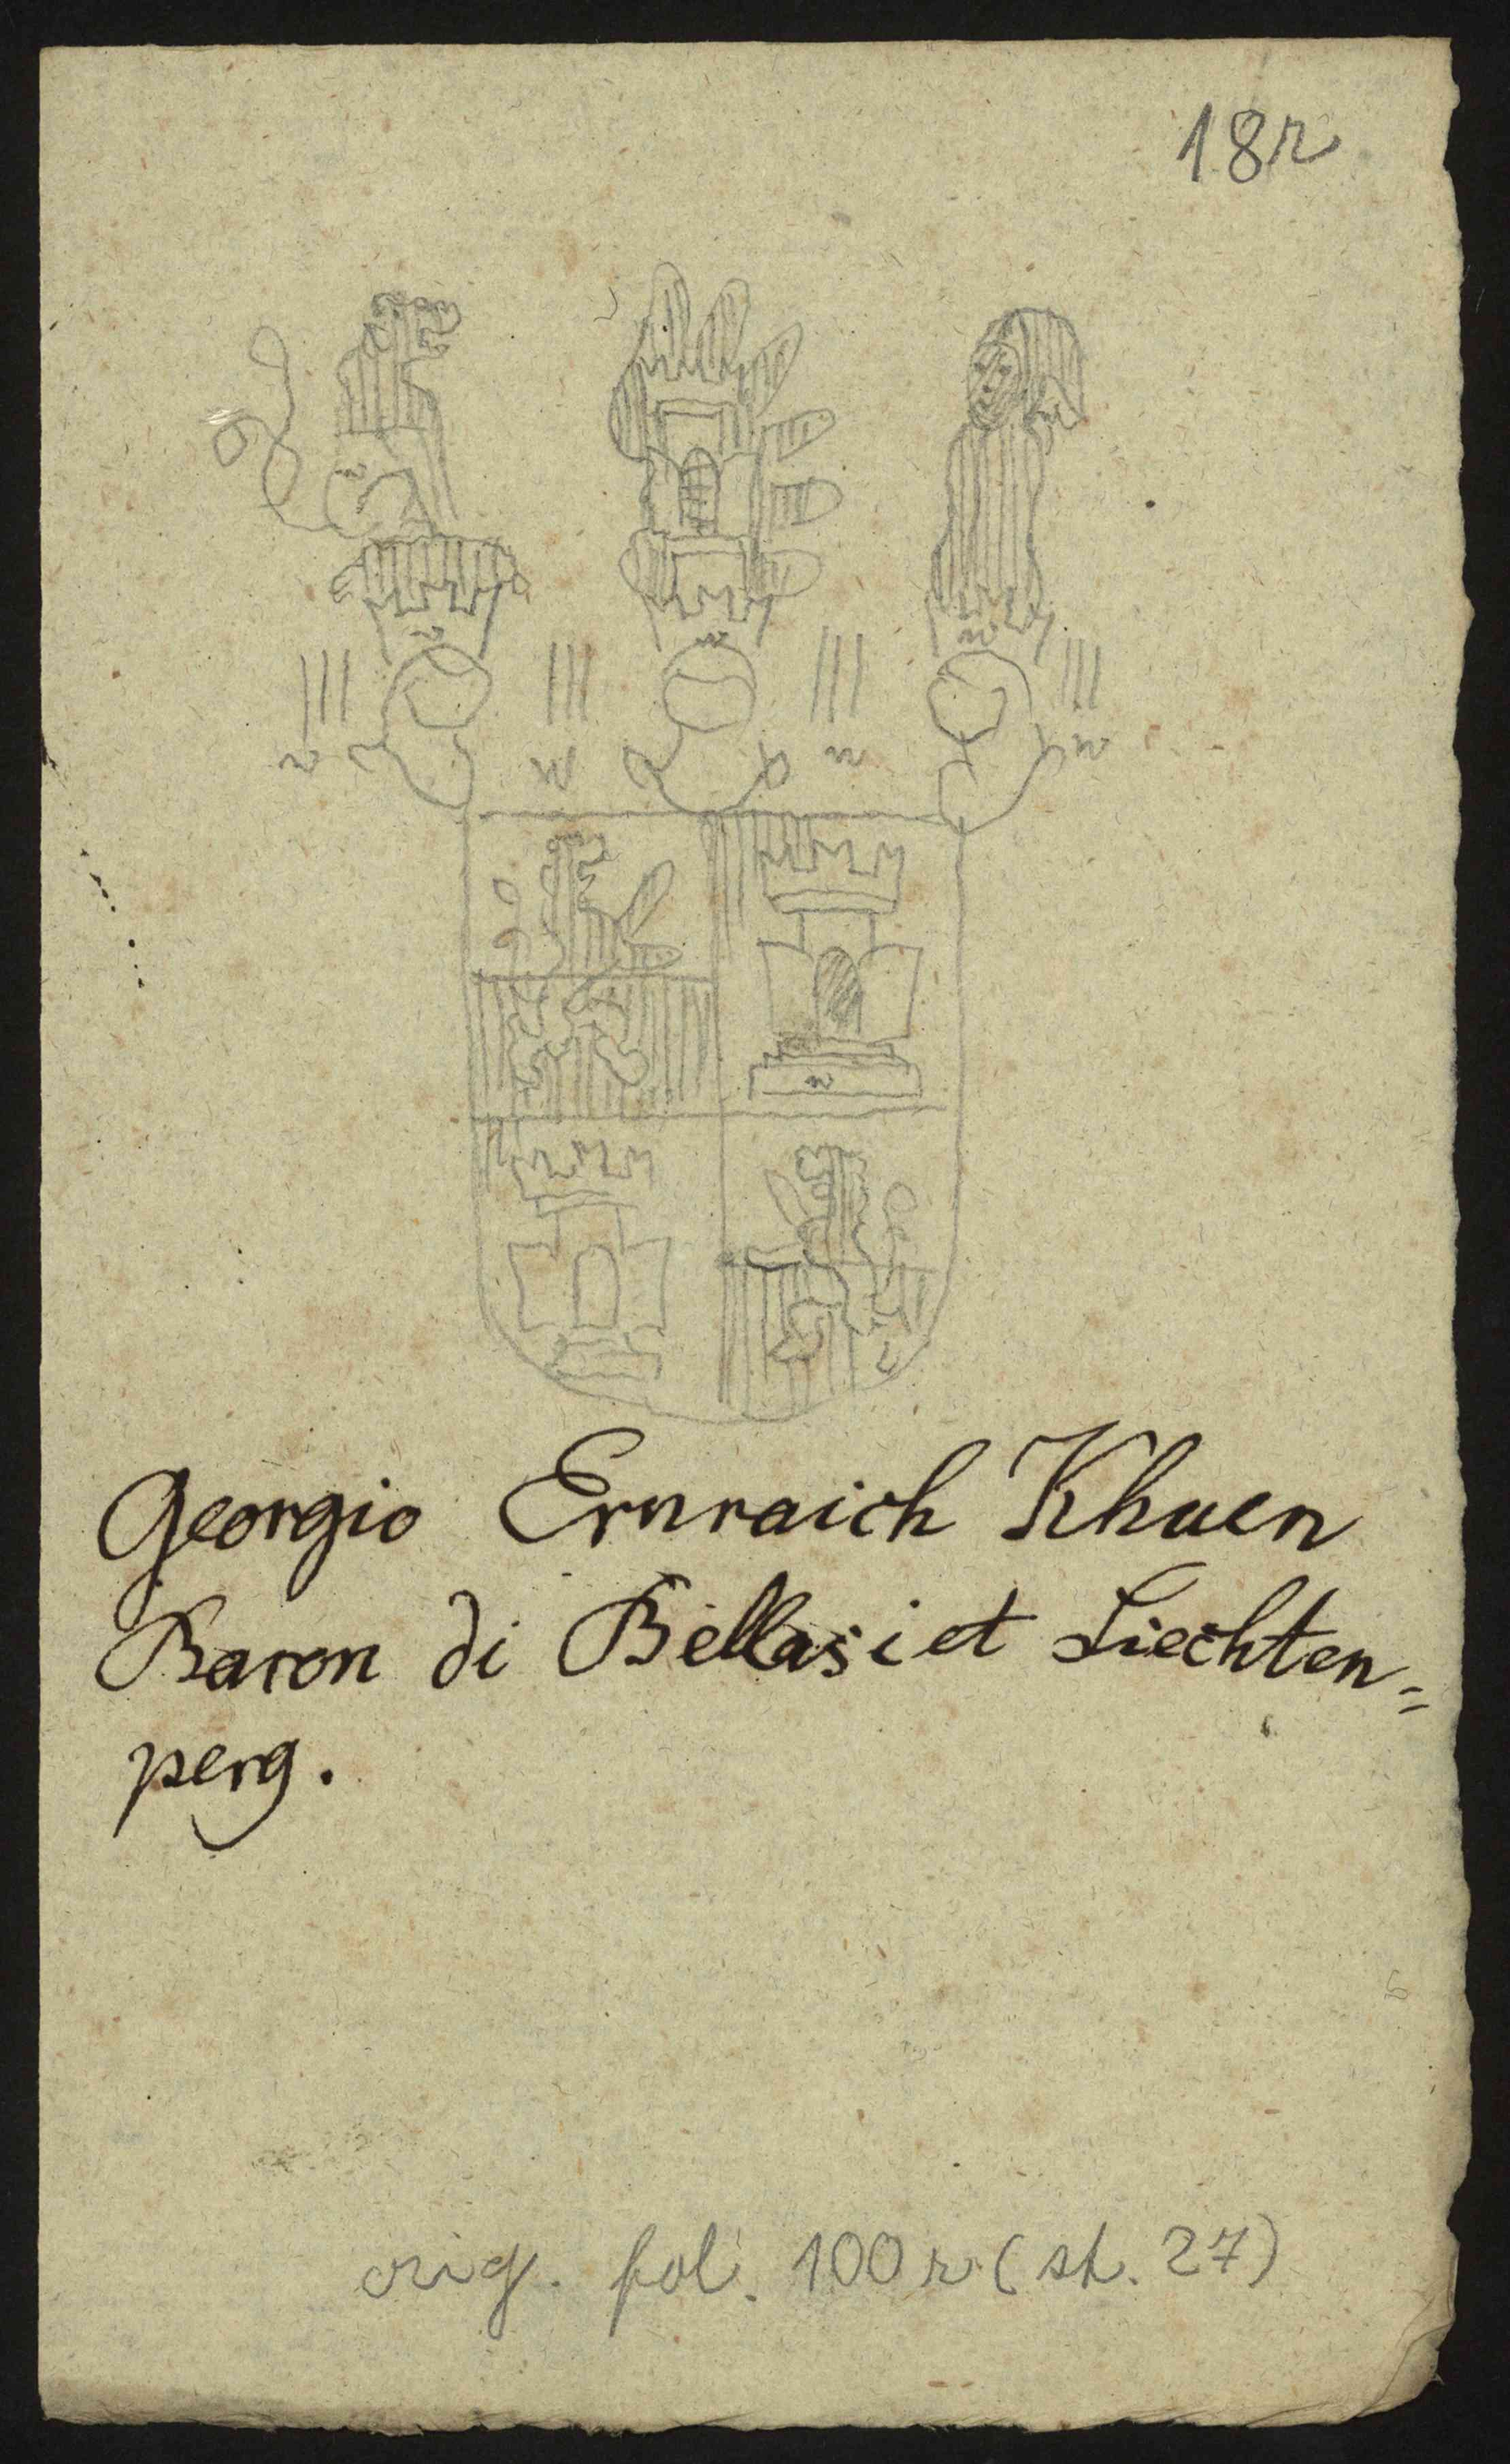 18r
w
w
w
w
w
w
w
w
w
w
Georgio Ernraich Khuen
Baron di Bellasi et Liechten=
perg.
orig. fol. 100r (st. 27)